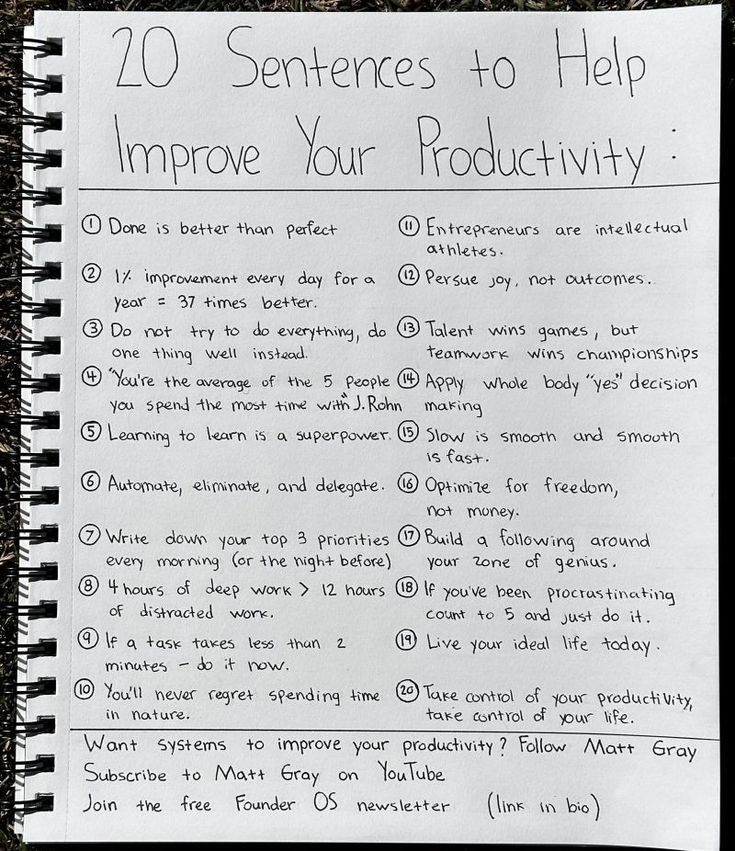 20 Sentences to Help
Improve Your Productivity :
① Done is better than perfect
② 1% improvement every day for a
year = 37 times better.
③ Do not try to do everything, do
one thing well instead.
④ "You're the average of the 5 people
you spend the most time with" J. Rohn
⑤ Learning to learn is a superpower.
⑥ Automate, eliminate, and delegate.
⑦ Write down your top 3 priorities
every morning (or the night before)
⑧ 4 hours of deep work > 12 hours
of distracted work.
⑨ If a task takes less than 2
minutes - do it now.
⑩ You'll never regret spending time
in nature.
⑪ Entrepreneurs are intellectual
athletes.
⑫ Persue joy, not outcomes.
⑬ Talent wins games, but
teamwork wins championships
⑭ Apply whole body "yes" decision
making
⑮ Slow is smooth and smooth
is fast.
⑯ Optimize for freedom,
not money.
⑰ Build a following around
your zone of genius.
⑱ If you've been procrastinating
count to 5 and just do it.
⑲ Live your ideal life today.
⑳ Take control of your productivity,
take control of your life.
Want systems to improve your productivity? Follow Matt Gray
Subscribe to Matt Gray on YouTube
Join the free Founder OS newsletter (link in bio)